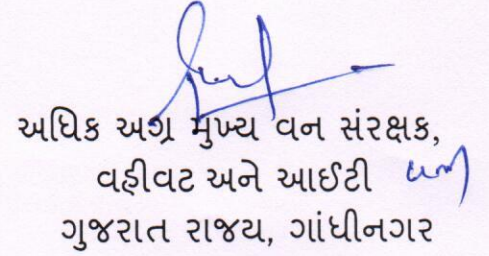 અધિક અગ્ર મુખ્ય વન સંરક્ષક,
વહીવટ અને આઈટી
ગુજરાત રાજય, ગાંધીનગર